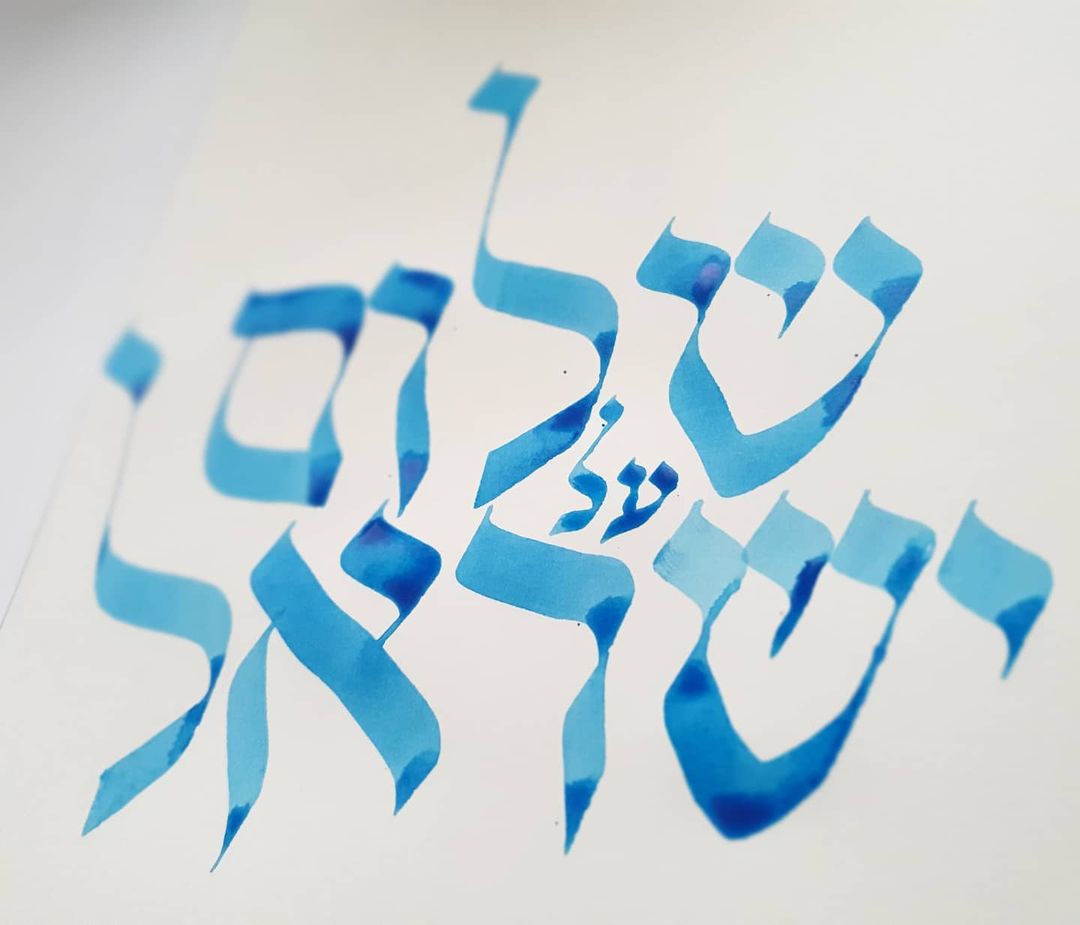 שלום
על
ישראל